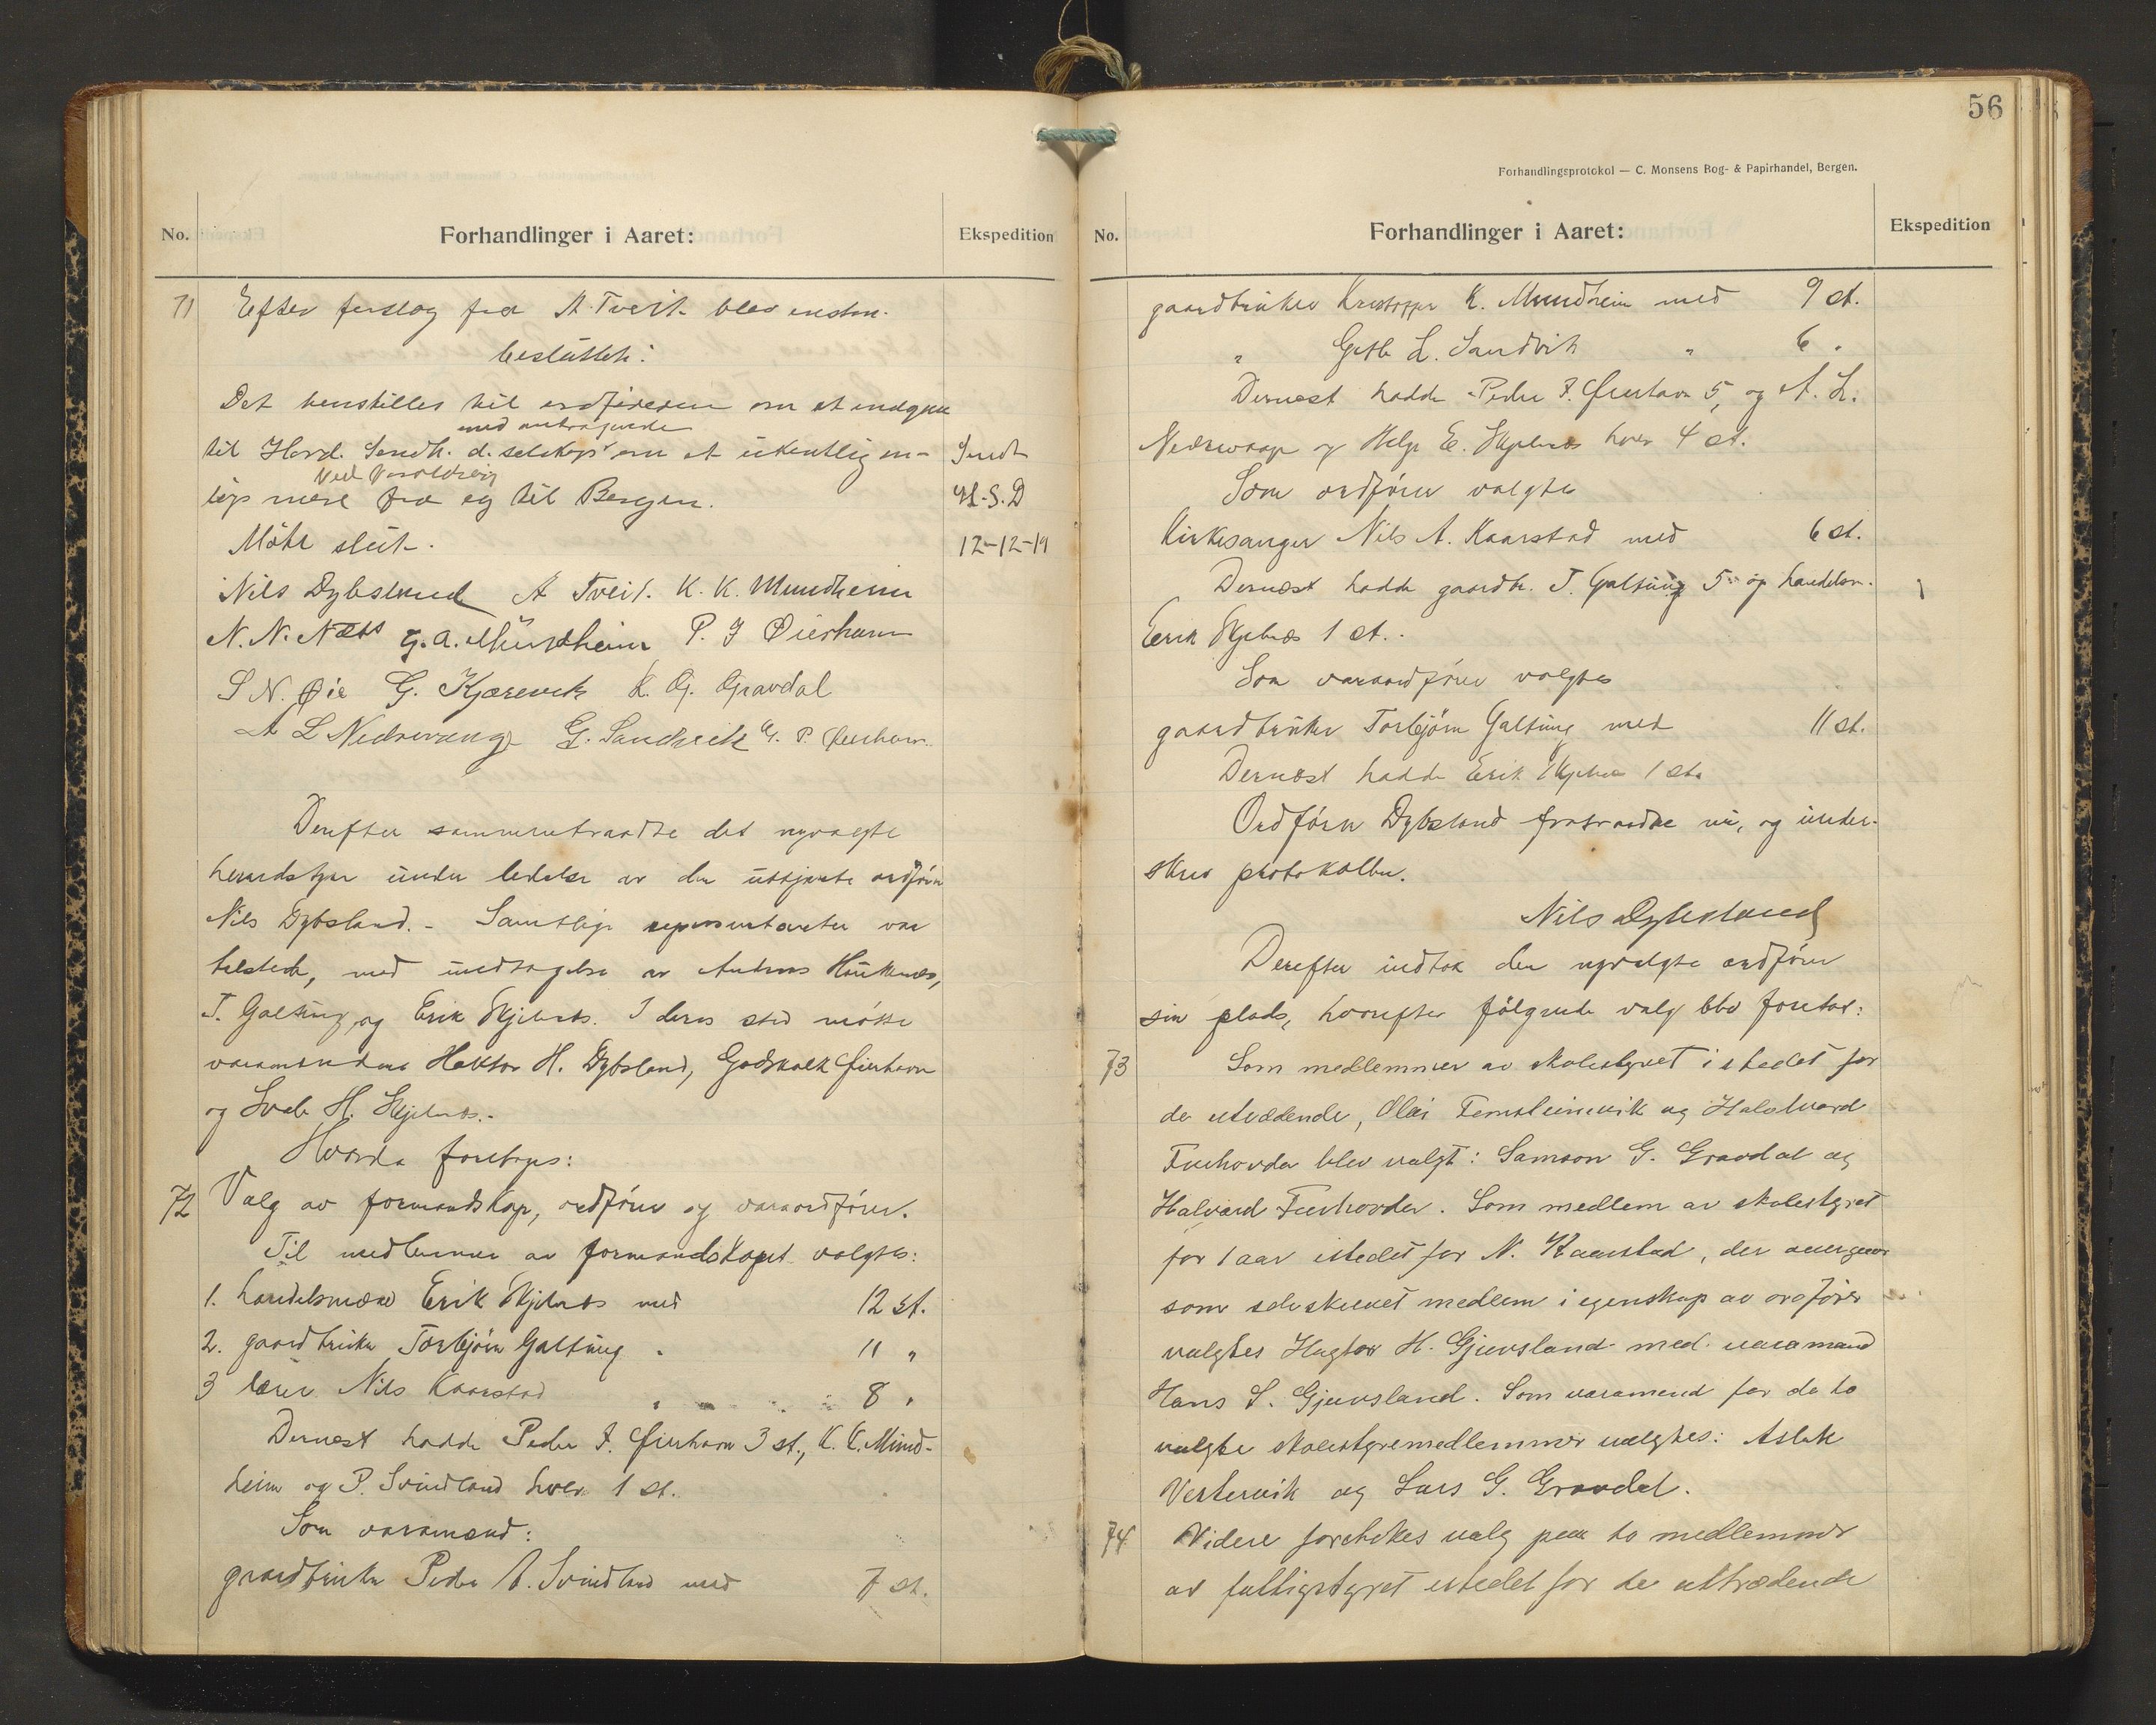 No.
Forhandlinger i Aaret:
Ekspedition
71 Efter forslag fra A. Tveit blev enstm.
besluttet:
Det henstilles til ordføreren om at indgaa
med andragende
til Hord. Søndh. d. selskap om et ukentlig an-
Ved Varaldsøy
løp mere fra og til Bergen.
Sendt
H.S.D
12-12-19
Møte slut.
Nils Dybsland A Tveit. K. K. Mundheim
N. N. Næss G. A. Mundheim P. J Øierhavn
S N. Øie G. Kjærevik K. G. Gravdal
A L Nedrevaage G. Sandvik G. P. Øierhavn
Derefter sammentraadte det nyvalgte
herredstyre under ledelse av den utskjævte ordfører
Nils Dybsland. - Samtlige representanter var
tilstede, med undtagelse av Andreas Haukenæs,
T. Galtung, og Erik Skjelnæs. I deres sted møtte
varamændene Haktor H. Dybsland, Godskalk Øierhavn
og H. Skjelnæs.-
Hvorda foretoges:
72 Valg av formandskap, ordfører og varaordfører.
Til medlemmer av formandskapet valgtes:
1. handelsmand Erik Skjelnæs med 12 st.
2. gaardbruker Torbjörn Galtung " 11 "
3 lærer Nils Kaarstad " 8 "
Dernæst hadde Peder J. Øierhavn 3 st., K. K. Mund-
heim og P. Svindland hver 1 st.
Som varamænd:
gaardbruker Peder A. Svindland med 7 st.
56
Forhandlingsprotokol — C. Monsens Bog- & Papirhandel, Bergen.
No.
Forhandlinger i Aaret:
Ekspedition
gaardbruker Kristoffer K. Mundheim med 9 st.
" L. Sandvik " 6 "
Dernæst hadde Peder J. Øierhavn 5, og A. L.
Nedrevaage og Helge E. Skjelnæs hver 4 st.
Som ordfører valgtes
Kirkesanger Nils A. Kaarstad med 6 st.
Dernæst hadde gaardbr. T. Galtung 5 og handelsm.
Erik Skjelnæs 1 st.
Som varaordfører valgtes
gaardbruker Torbjörn Galtung med 11 st.
Dernæst hadde Erik Skjelnæs 1 st.
Ordfører Dybsland fratraadte nu, og under-
skrev protokollen.
Nils Dybsland
Derefter indtok den nyvalgte ordfører
sin plads, hvorefter følgende valg blev foretat:
73 Som medlemmer av skolestyret i stedet for
de uttrædende, Olai Femsteinevik og Halvard
Furhovde blev valgt: Samson G. Gravdal og
Halvard Furhovde. Som medlem av skolestyret
for 1 aar istedet for N. Kaarstad, der overgaar
som selvskrevet medlem i egenskap av ordfører
valgtes Hagtor H. Gjuvsland med varamand
Hans S. Gjuvsland. Som varamænd for de to
valgte skolestyremedlemmer valgtes: Aslak
Vestervik og Lars G. Gravdal.
74 Videre foretokes valg paa to medlemmer
av fattigstyret istedet for de uttrædende